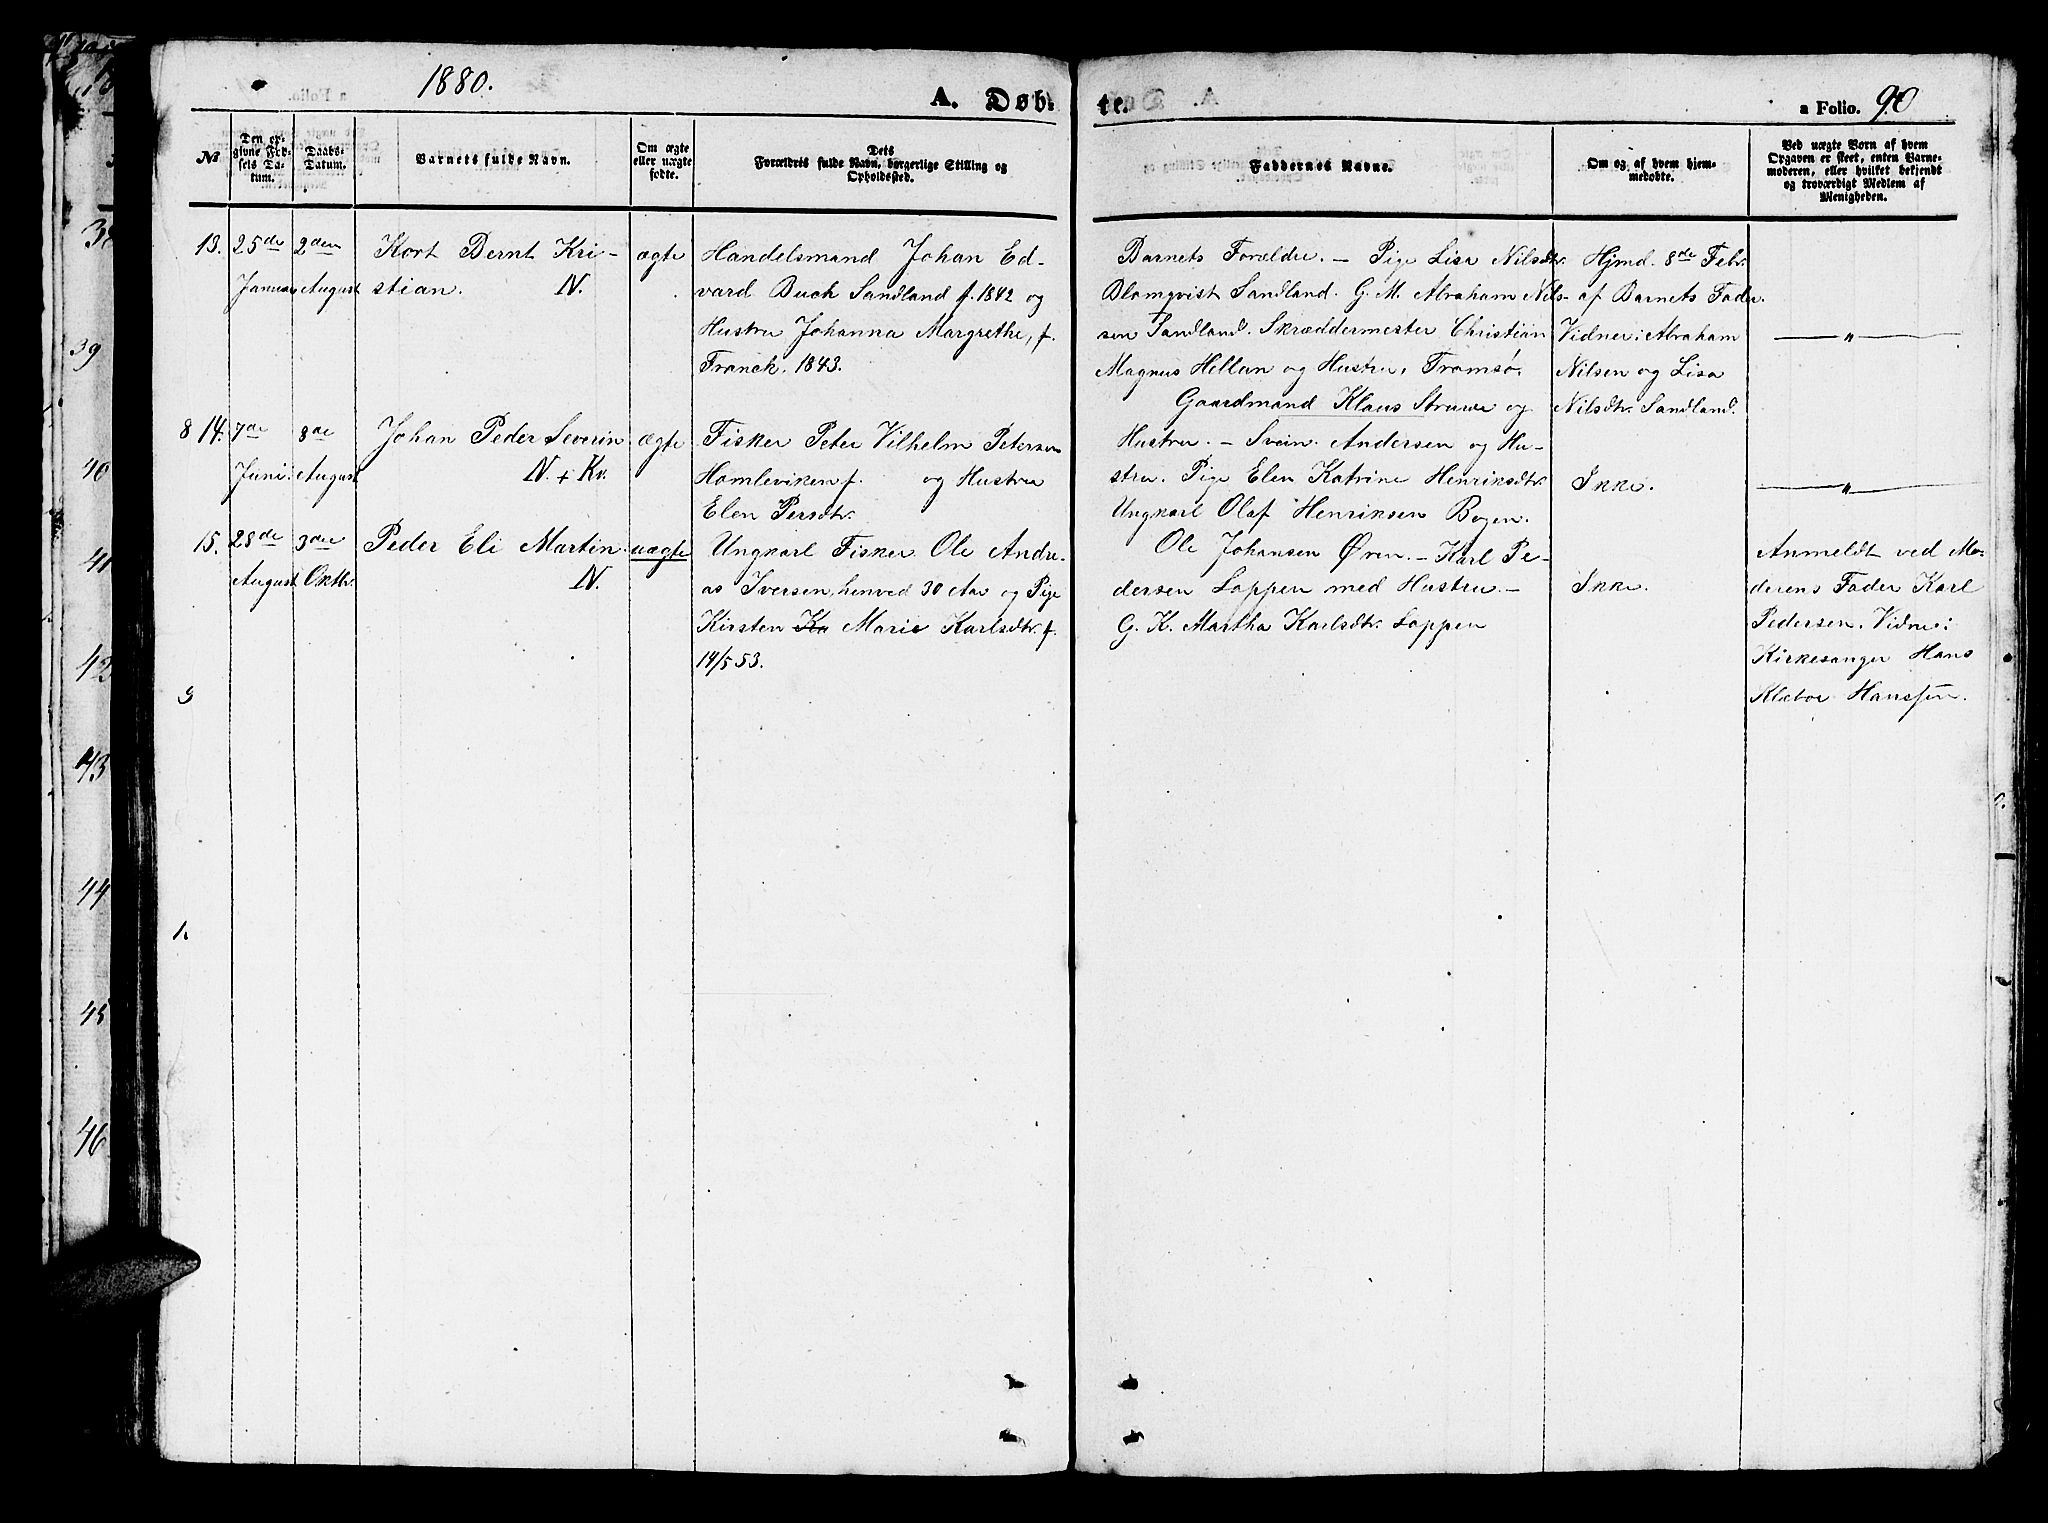 1880.
A. Døb-
te.
a Folio. 90
№
Den op-
givne Fød-
sels Da-
tum.
Daabs-
Datum.
Barnets fulde Navn.
Om ægte
eller uægte
fødte.
Dets
Forældris fulde Navn, borgerlige Stilling og
Opholdssted.
Faddernes Navne.
Om og af hvem hjem-
medøbte.
Ved uægte Born af hvem
Opgaven er skeet, enten Barne-
moderen, eller hvilket bekjendt
og troværdigt Medlem af
Menigheden.
13.
25de
Januar
2den
August
Kort Bernt Kri-
stian. N.
ægte
Handelsmand Johan Ed-
vard Buck Sandland f. 1842 og
Hustru Johanna Margrethe, f.
Franck. 1843.
Barnets Forældre. – Pige Lisa Nilsdtr.
Blomqvist Sandland. G. M. Abraham Nils-
sen Sandland. Skræddermester Christian
Magnus Hellan og Hustru, Tromsø.
Hjmd. 8de Febr.
af Barnets Fader.
Vidner: Abraham
Nilsen og Lisa
Nilsdtr. Sandland.
— " —
8 14.
7de
Juni.
8de
August
Johan Peder Severin
N. + Kv.
ægte
Fisker Peter Vilhelm Petersen
Hamleviken f. og Hustru
Elen Persdtr.
Gaardmand Klaus Struve og
Hustru. – Svein. Andersen og Hu-
stru. Pige Elen Katrine Henriksdtr.
Ungkarl Olaf Henriksen Bogen.
Ikke.
— " —
15.
28de
August
3die
Oktbr.
Peder Eli Martin.
N.
uægte
Ungkarl Fisker Ole Andre-
as Iversen, henved 30 Aar og Pige
Kirsten Ka Marie Karlsdtr. f.
14/5 53.
Ole Johansen Øren. – Karl Pe-
dersen Loppen med Hustru. –
G. K. Martha Karlsdtr. Loppen
Ikke.
Anmeldt ved Mo-
derens Fader Karl
Pedersen. Vidne:
Kirkesanger Hans
Klæboe Hanssen.
9
1.
38
39
40
41
42
43
44
45
46